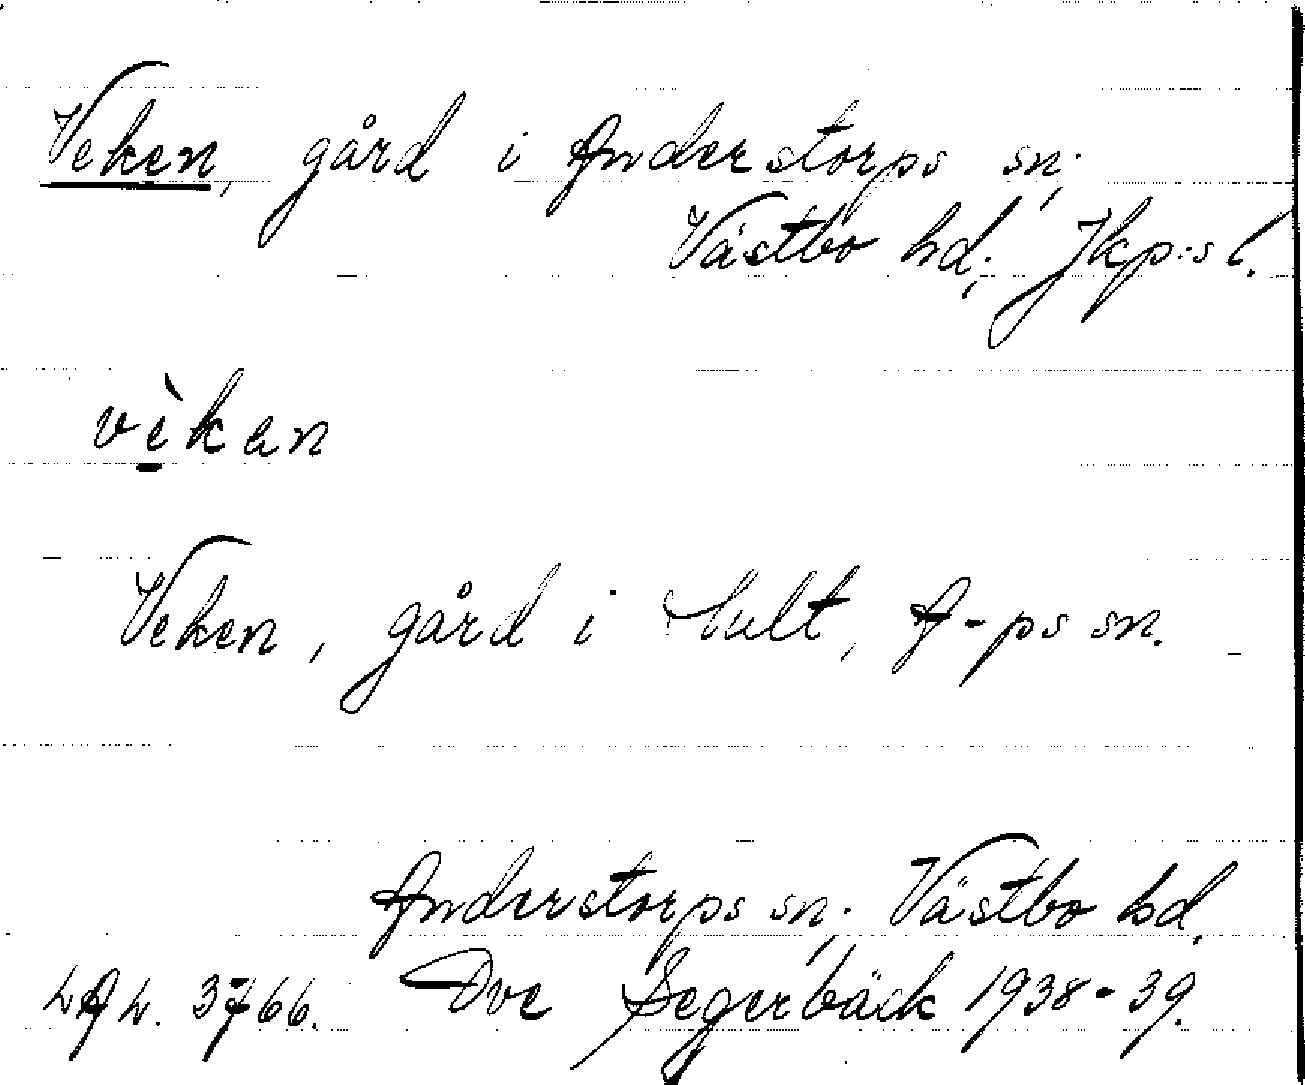 Veken, gård i Anderstorps sn;
Västbo hd; Jkp:s l.
vèkan
Veken, gård i Hult, A-ps sn.
Anderstorps sn, Västbo hd,
LAL. 3766. Ove Segerbäck 1938-39.